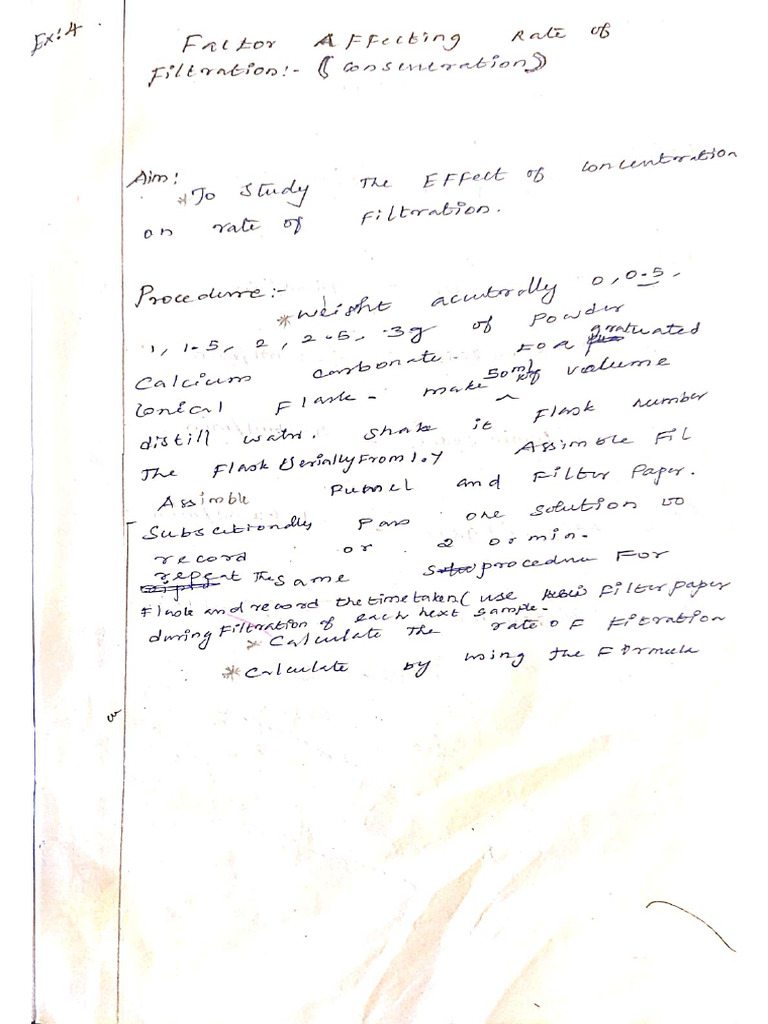 Ex:4
Factor Affecting Rate of
Filtration:- (Consentration)
Aim:
*To Study The Effect of Concentration
on rate of Filtration.
Procedure:-
*Weight acuterally 0, 0.5,
1, 1.5, 2, 2.5, 3g of Powder
Calcium carbonate. For graduated
Conical Flask. make 50ml of volume
distill water. Shake it Flask number
The Flask serially From 1.7 Assimble Fil
Assimble Funnel and Filter Paper.
Subsetionally Pass one solution
record or 2 or min.
repeat The same procedure For
Flask and record the time taken (use Filter paper
during Filtration of each next Sample.
* Calculate The rate of Fitration
* Calculate by using the Formula